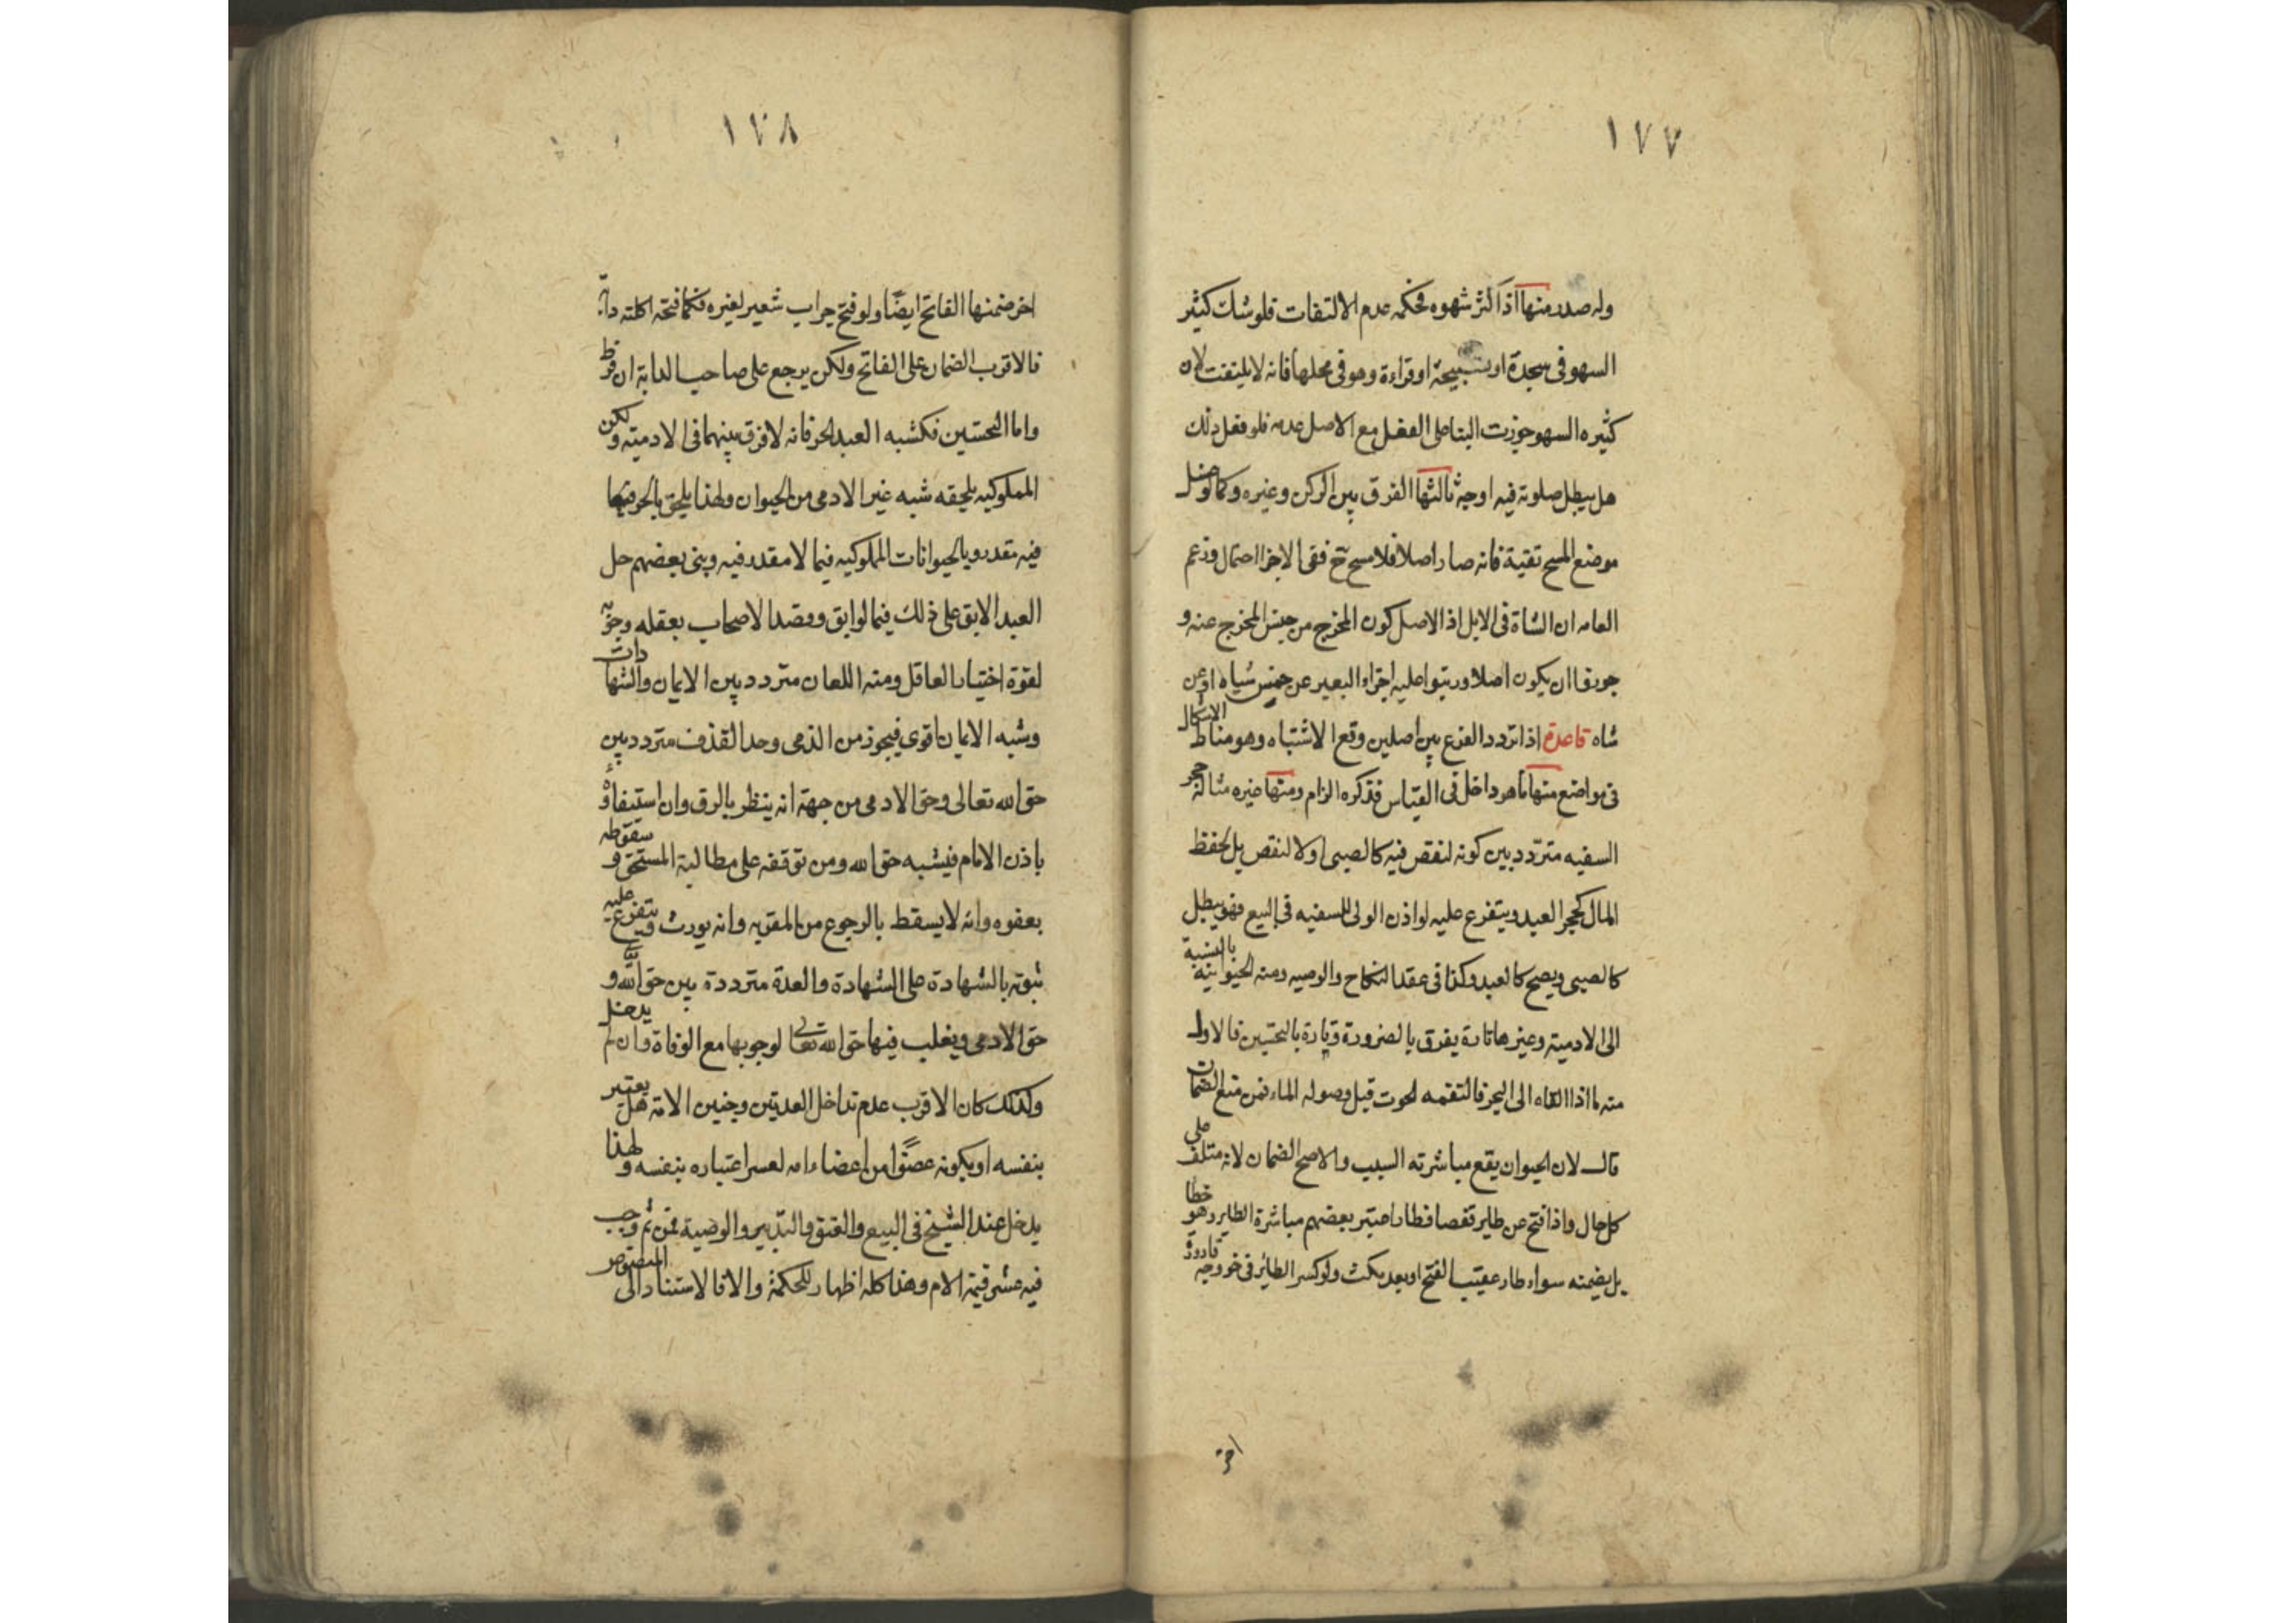 ١٧٧
وله صدر منها اذا كثر شهوه فحكمه عدم الالتفات فلو شك كثير
السهو فى سجدة او تسبيحة او قراءة وهو فى محلها فانه لا يلتفت لان
كثيره السهو جوزت البنا على الفعل مع الاصل عدمه فلو فعل ذلك
هل يبطل صلوته فيه اوجه ثالثها الفرق بين الركن وغيره وكما لو غسل
موضع المسح تقية فانه صار اصلا فلا مسح ح ففى الاجزا احتمال وزعم
العامه ان الشاة فى الابل اذ الاصل كون المخرج من جنس المخرج عنه و
جوزوا ان يكون اصلا ورتبوا عليه اجزاء البعير عن خمس شياه او عن
شاه قاعدة اذا تردد الفرع بين اصلين وقع الاشتباه وهو مناط الاشكال
فى مواضع منها ما هو داخل فى القياس فذكره الزام ومنها غيره مثاله حجر
السفيه متردد بين كونه لنقص فيه كالصبى او لا لنقص بل لحفظ
المال كحجر العبد ويتفرع عليه لو اذن الولى للسفيه فى البيع فهو يبطل
كالصبى ويصح كالعبد وكذا فى عقد النكاح والوصيه ومنه الحيوانيه بالنسبة
الى الادمية وغيرها تارة يفرق بالضرورة وتارة بالتحسين فالاول
منه ما اذا القاه الى البحر فالتقمه لحوت قبل وصوله الماء فمن منع الضمان
قال لان الحيوان يقع مباشرته السبب والاصح الضمان لانه متلف على
كل حال واذا فتح عن طاير قفصا فطار اعتبر بعضهم مباشرة الطاير وهو خطا
بل يضمنه سواء طار عقيب الفتح او بعد مكث ولو كسر الطائر فى خروجه قارورة
اخر
١٧٨
اخر ضمنها الفاتح ايضًا ولو فتح جراب شعير لغيره فكما فتحه اكلته دابة
فالاقرب الضمان على الفاتح ولكن يرجع على صاحب الدابة ان فرط
واما التحسين فكشبه العبد الحر فانه لا فرق بينهما فى الادمية ولكن
المملوكيه يلحقه شبه غير الادمى من الحيوان ولهذا يلحق بالحر فيما
فيه مقدر وبالحيوانات المملوكيه فيما لا مقدر فيه وبنى بعضهم حل
العبد الابق على ذلك فيما لو ابق ومقصد الاصحاب بعقله وحريه
لقوة اختيار العاقل ومنه اللعان متردد بين الايمان والشهادات
وشبه الايمان اقوى فيجوز من الذمى وحد القذف متردد بين
حق الله تعالى وحق الادمى من جهة انه ينظر بالرق وان استيفاؤه
باذن الامام فيشبه حق الله ومن توقفه على مطالبة المستحق وسقوطه
بعفوه وانه لا يسقط بالرجوع من المقر به وانه يورث ويتفرع عليه
ثبوته بالشهادة على الشهادة والعدة مترددة بين حق الله و
حق الادمى ويغلب فيها حق الله تعالى لوجوبها مع الوفاة وان لم يدخل
وكذلك كان الاقرب عدم تداخل العدتين وجنين الامة هل يعتبر
بنفسه او بكونه عضوًا من اعضاء امه لعسر اعتباره بنفسه ولهذا
يدخل عند الشيخ فى البيع والعتق والتدبير والوصية فمن ثم وجب
فيه عشر قيمة الام وهذا كله اظهار للحكمة والا فالاستناد الى المنصوص